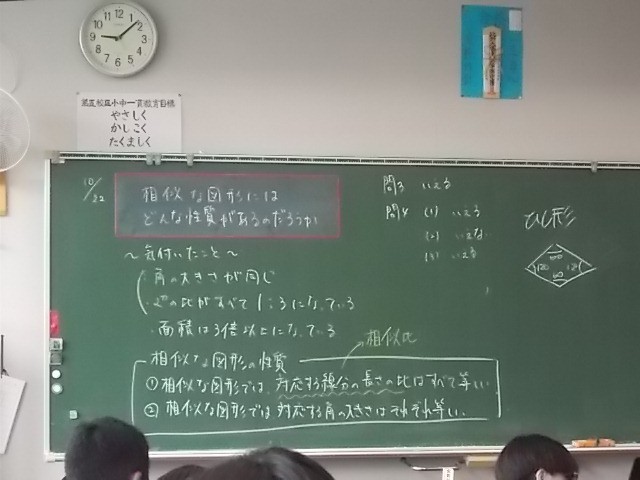 やさしく
かしこく
たくましく
10/22
相似な図形には
どんな性質があるのだろうか
~気付いたこと~
・角の大きさが同じ
の比がすべて1:3になっている
・面積は3倍以上になっている
相似な図形の性質
相似比
①相似な図形では、対応する線分の長さの比はすべて等しい.
②相似な図形では対応する角の大きさはそれぞれ等しい.
問3 いえる
問4 (1) いえる
(2) いえない
(3) いえる
ひし形
120 120
60